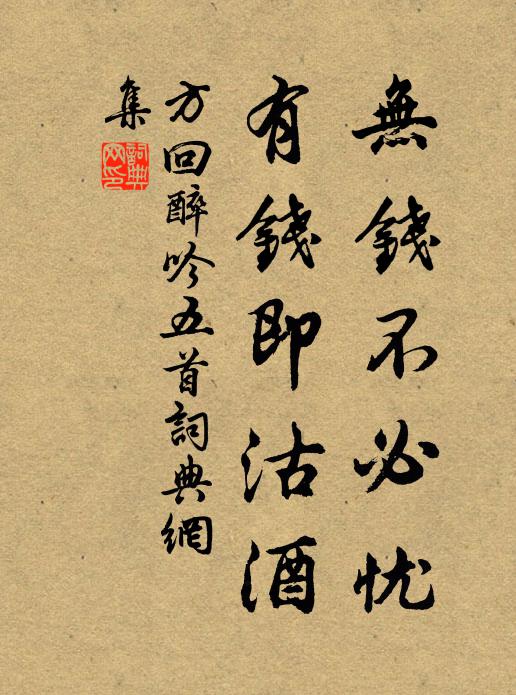 無錢不必忧
有錢即沽酒
方回醉吟五首詞典網
集
詞典
网印